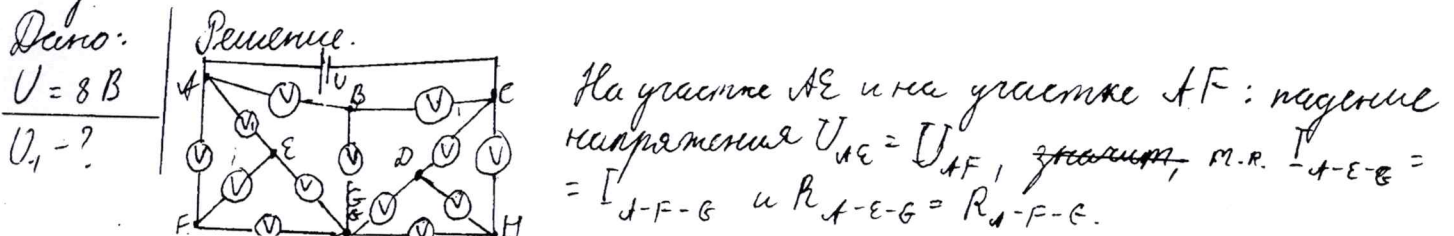 Дано:
U = 8 В
U₁ - ?
Решение.
U
A
V
B
V
C
V₁
V
E
V
D
V
V
V
V
G
V
V
F
V
V
H
На участке AE и на участке AF: падение
напряжения U_AE = U_AF, значит, т.к. I_A-E-G =
= I_A-F-G и R_A-E-G = R_A-F-G.